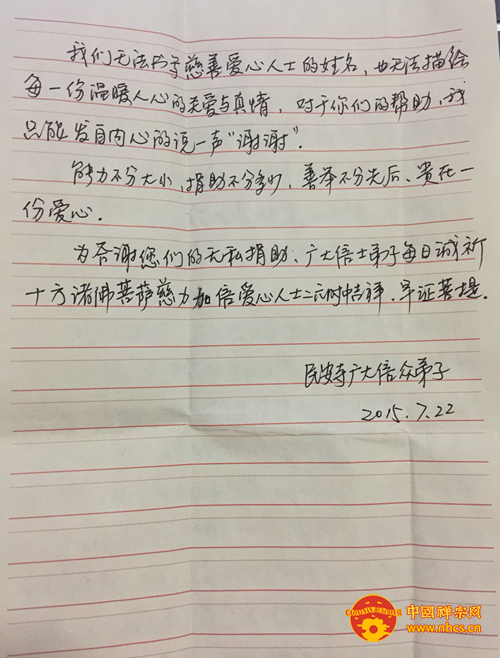 我们无法书写慈善爱心人士的姓名,也无法描绘
每一份温暖人心的关爱与真情,对于你们的帮助,我
只能发自内心的说一声“谢谢”.
能力不分大小,捐助不分多少,善举不分先后、贵在一
份爱心.
为答谢您们的无私捐助、广大信士弟子每日诚祈
十方诸佛菩萨慈力加倍爱心人士二六时中吉祥、早证菩提.
民安寺广大信众弟子
2015.7.22
中國禪宗网
www.nhcs.cn